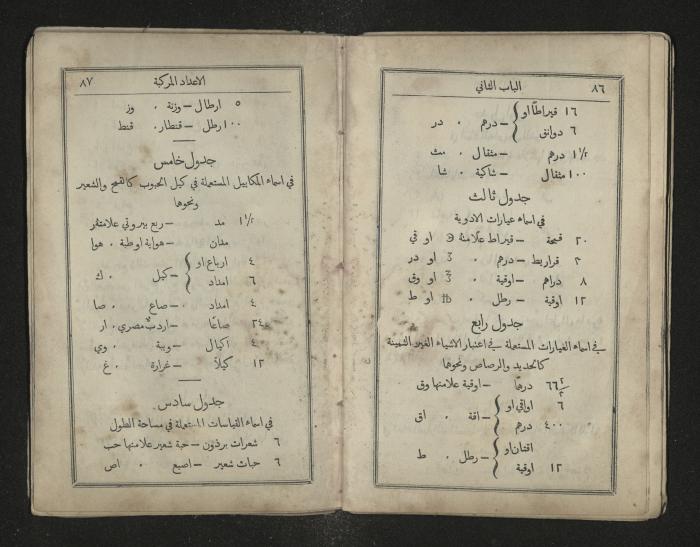 ٨٦ الباب الثاني
١٦ قيراطًا او
٦ دوانق
– درهم ٠ در
١½ درهم – مثقال ٠ مث
١٠٠ مثقال – شاكية ٠ شا
جدول ثالث
في اسماء عيارات الادوية
٢٠ قمحة – قيراط علامته ϶ او قي
٣ قراريط – درهم ٠ ʒ او در
٨ دراهم – اوقية ٠ ℥ او وق
١٢ اوقية – رطل ٠ ℔ او ط
جدول رابع
في اسماء العيارات المستعملة في اعتبار الاشياء الغير الثمينة
كالحديد والرصاص ونحوها
٦٦⅔ درهمًا – اوقية علامتها وق
٦ اواقي او
٤٠٠ درهم
– اقة ٠ اق
اقتان او
١٢ اوقية
– رطل ٠ ط
الاعداد المركبة ٨٧
٥ ارطال – وزنة ٠ وز
١٠٠ رطل – قنطار ٠ قنط
جدول خامس
في اسماء المكاييل المستعملة في كيل الحبوب كالقمح والشعير
ونحوها
١½ مد – ربع بيروتي علامته
مدان – او طبة ٠ هوا
٤ ارباع او
٦ امداد
– كيل ٠ ك
٤ امداد – صاع ٠ صا
٢٤ صاعًا – اردبّ مصري ٠ ار
٤ اكيال – ويبة ٠ وي
١٢ كيلًا – غرارة ٠ غ
جدول سادس
في اسماء القياسات المستعملة في مساحة الطول
٦ شعرات برذون – حبة شعير علامتها حب
٦ حبات شعير – اصبع ٠ اص